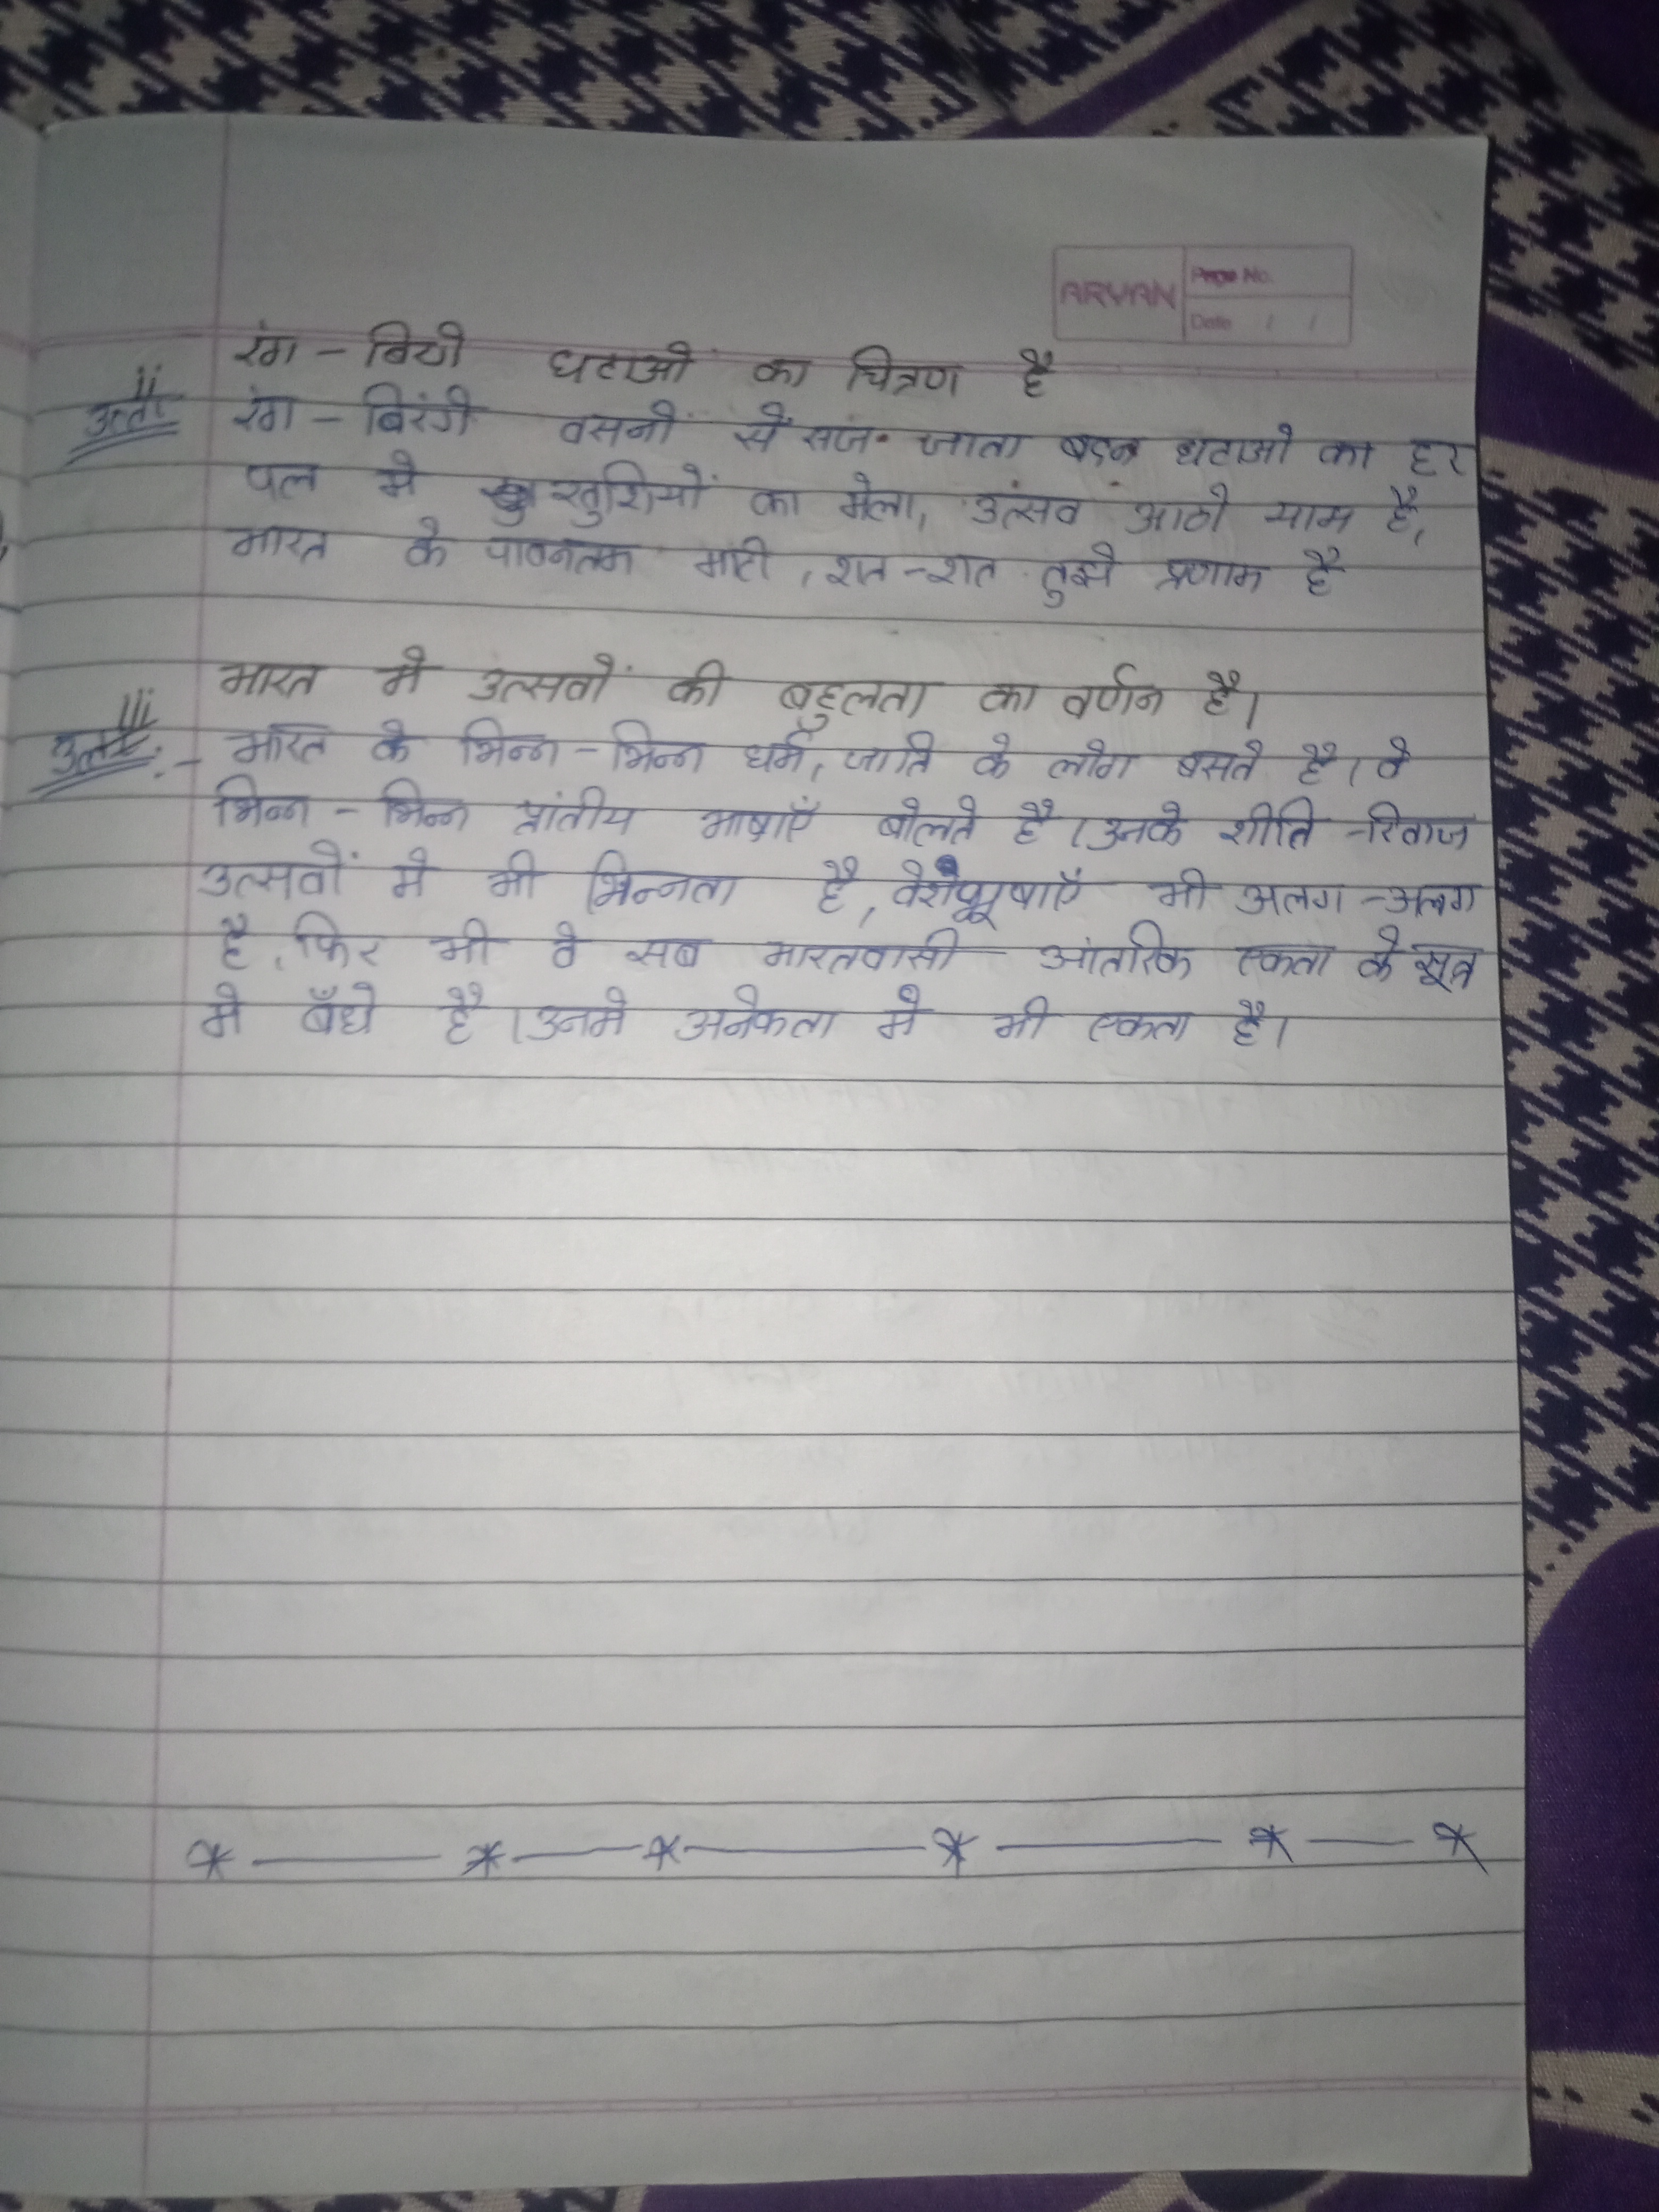 ARYAN Page No.
Date / /
रंग - बिरंगे घटाओ का चित्रण है
ii
उत्तर रंग - बिरंगे वसनों से सज जाता बदन घटाओ का हर
पल मे खुशियों का मेला, उत्सव आठो याम है,
भारत के पावनतम माटी, शत-शत तुझे प्रणाम है
भारत मे उत्सवों की बहुलता का वर्णन है।
iii
उत्तर:- भारत के भिन्न - भिन्न धर्म, जाति के लोग बसते है। वे
भिन्न - भिन्न प्रांतीय भाषाएँ बोलते है। उनके रीति -रिवाज
उत्सवों मे भी भिन्नता है, वेशभूषाएँ भी अलग -अलग
है, फिर भी वे सब भारतवासी आंतरिक एकता के सूत्र
मे बँधे है। उनमे अनेकता मे भी एकता है।